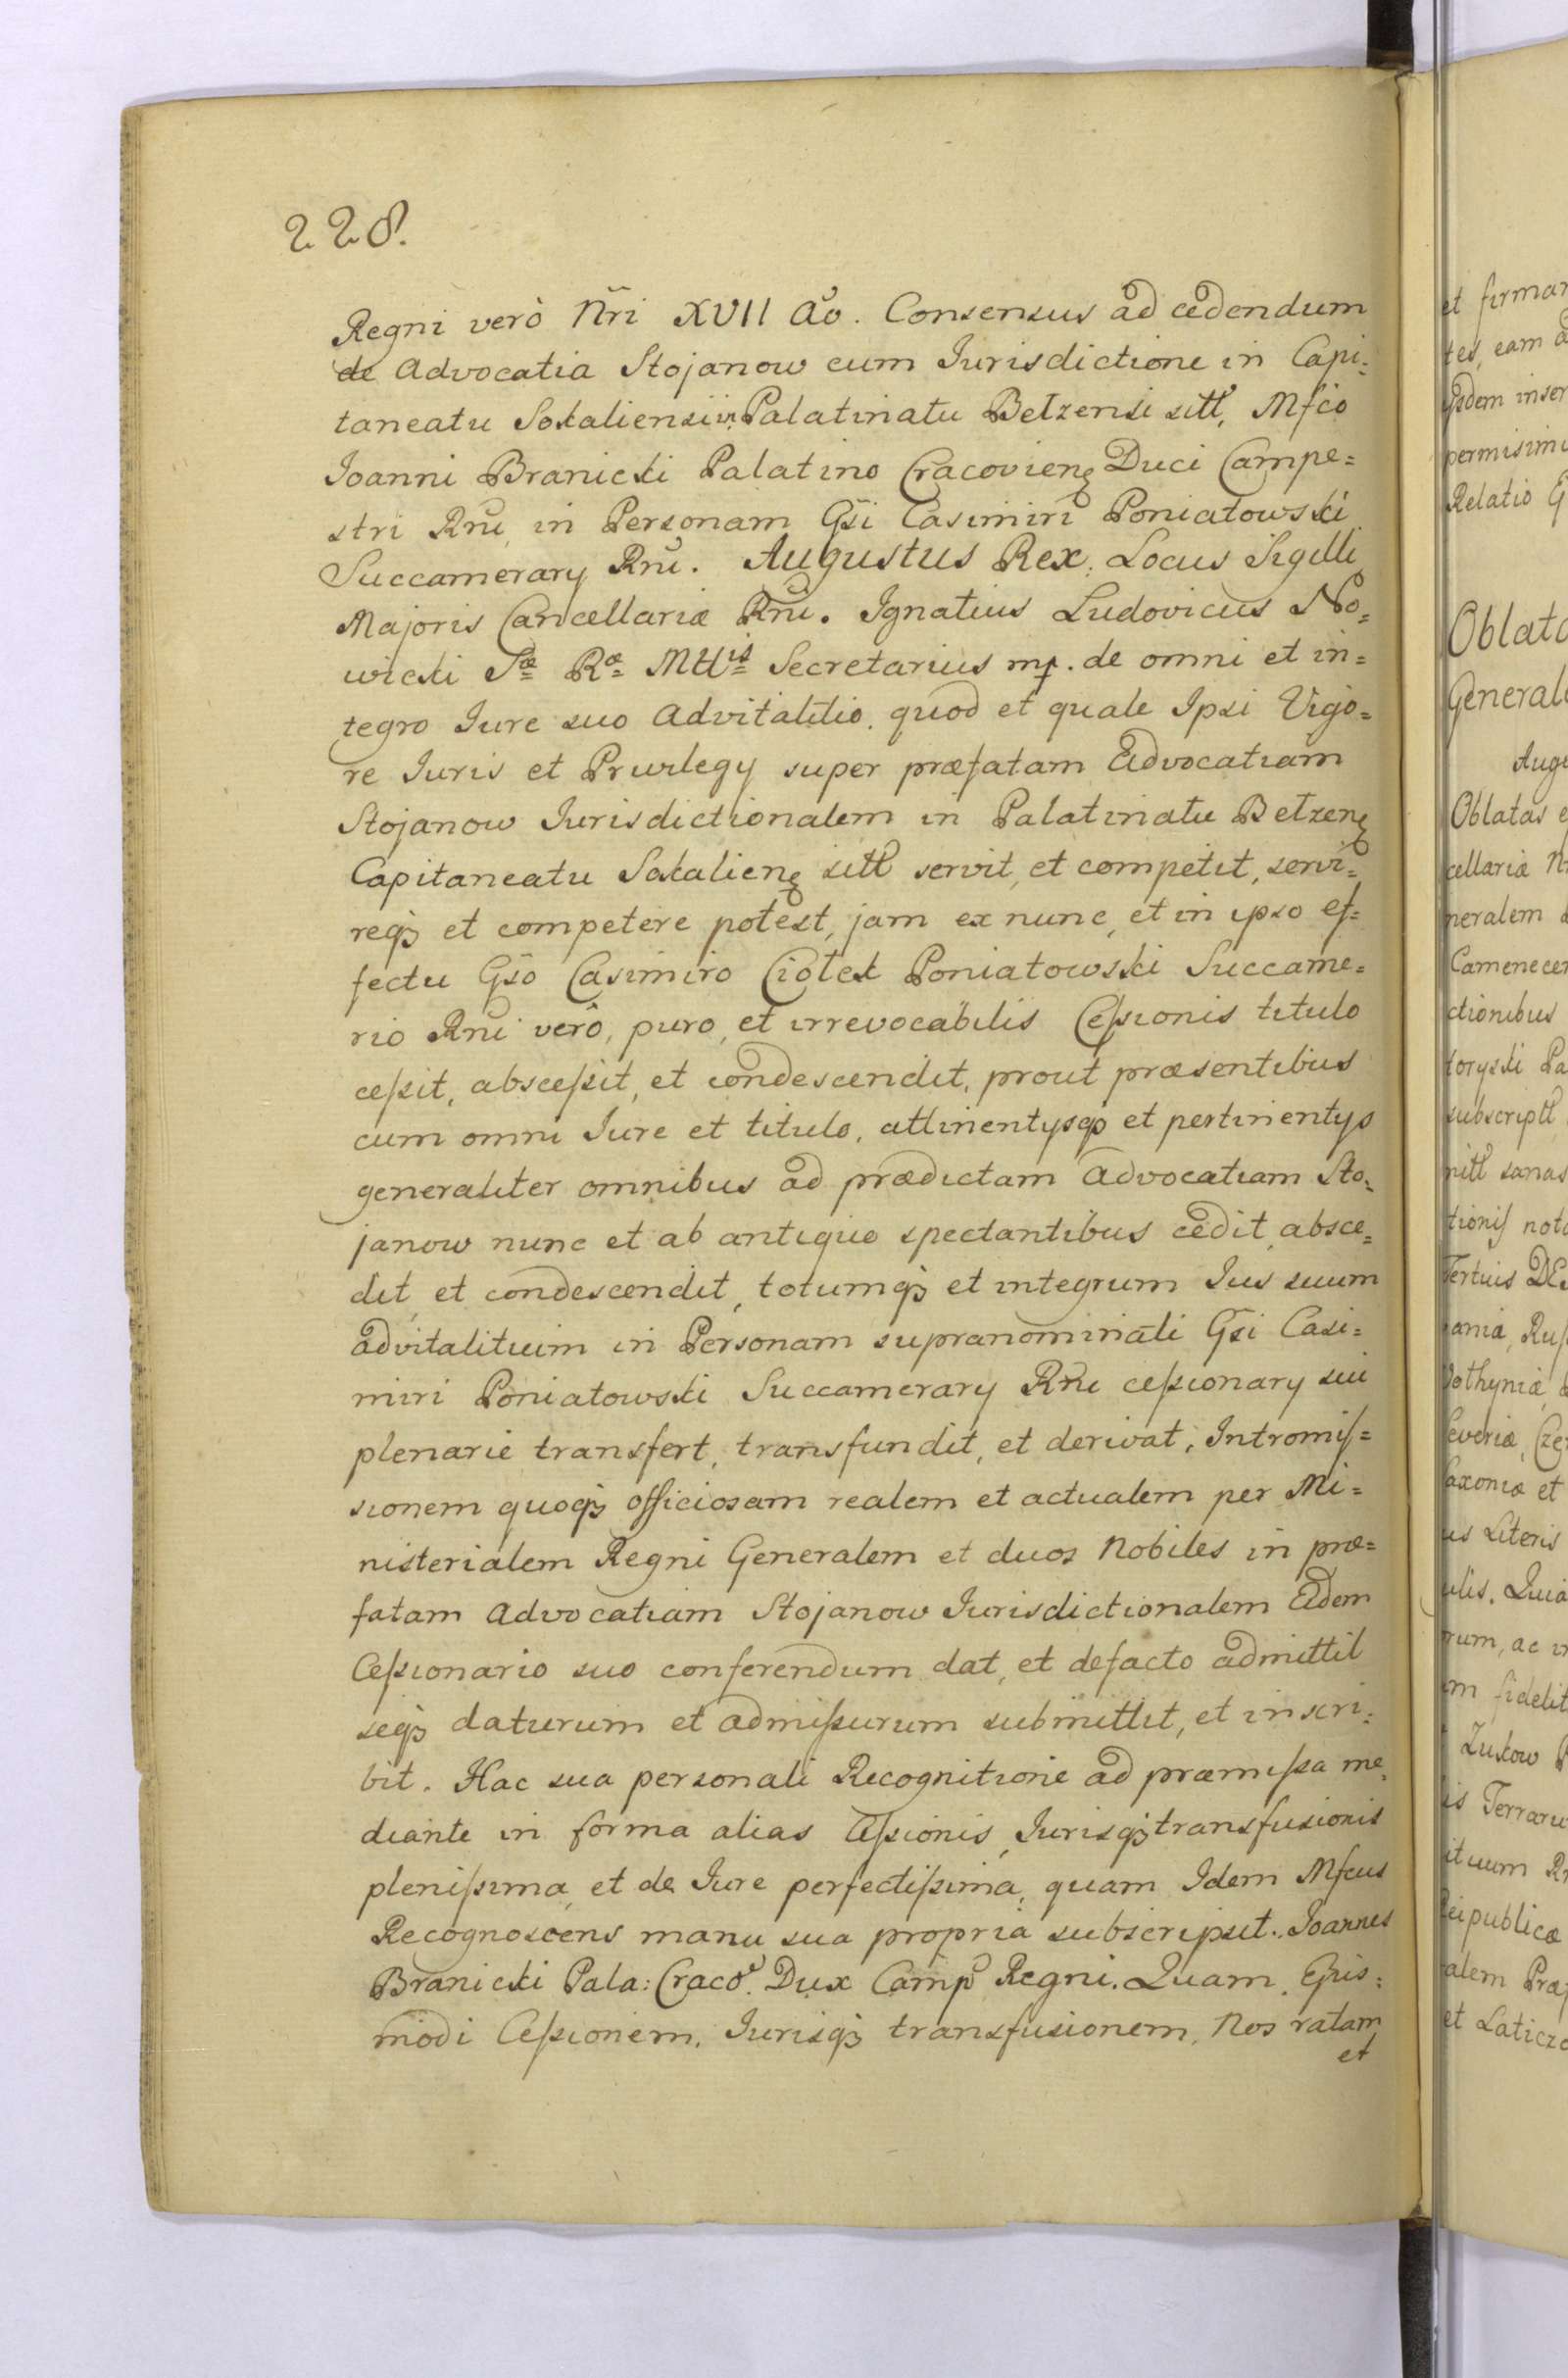 228.
Regni verò Nr̃i XVII Aõ. Consensus ad cedendum
de Advocatia Stojanow cum Jurisdictione in Capi=
taneatu Sokaliensi in Palatinatu Belzensi sitt, Mfco
Joanni Branicki Palatino Cracovien Duci Campe=
stri Rni, in Personam Gsi Casimiri Poniatowski
Succamerary Rni. Augustus Rex. Locus Sigilli
Majoris Cancellariæ Rni. Ignatius Ludovicus No=
wicki Sæ Ræ Mttis Secretarius mp. de omni et in=
tegro Jure suo Advitalitio, quod et quale Ipsi Vigo=
re Juris et Privilegy super præfatam Advocatiam
Stojanow Jurisdictionalem in Palatinatu Belzen
Capitaneatu Sokalien sitt servit, et competit, servi=
reqȝ et competere potest, jam ex nunc, et in ipso ef=
fectu Gso Casimiro Ciołek Poniatowski Succame=
rio Rni verô, puro, et irrevocabilis Cessionis titulo
cessit, abscessit, et condescendit, prout præsentibus
cum omni Jure et titulo, attinentysqȝ et pertinentys
generaliter omnibus ad prædictam Advocatiam Sto=
janow nunc et ab antiquo spectantibus cedit, absce=
dit, et condescendit, totumqȝ et integrum Jus suum
advitalitium in Personam supranominati Gsi Casi=
miri Poniatowski Succamerary Rni cessionary sui
plenarie transfert, transfundit, et derivat, Intromis=
sionem quoqȝ officiosam realem et actualem per Mi=
nisterialem Regni Generalem et duos Nobiles in præ=
fatam Advocatiam Stojanow Jurisdictionalem Eidem
Cessionario suo conferendum dat, et defacto admittit
seqȝ daturum et admissurum submittit, et inscri=
bit. Hac sua personali Recognitione ad præmissa me=
diante in forma alias Cessionis, Jurisqȝ transfusionis
plenissima, et de Jure perfectissima, quam Idem Mfcus
Recognoscens manu sua propria subscripsit. Joannes
Branicki Pala: Craco. Dux Camp Regni. Quam Ejus=
modi Cessionem, Jurisqȝ transfusionem, Nos ratam
et
et firmar
tes, eam a
permisimu
Relatio G
Oblata
General
Augu
Oblatas e
cellariæ N
neralem
Camenecen
ctionibus
toryski Pa
subscriptt
nitt sanas
tionis nota
Tertius DEi
aniæ, Rus
Volhyniæ
Severiæ, Cze
axoniæ et
us Literis
ulis. Quia
rum, ac in
m fidelit
Zukow
is Terraru
ituum Rn
Reipublicæ
alem Præ
et Laticzo